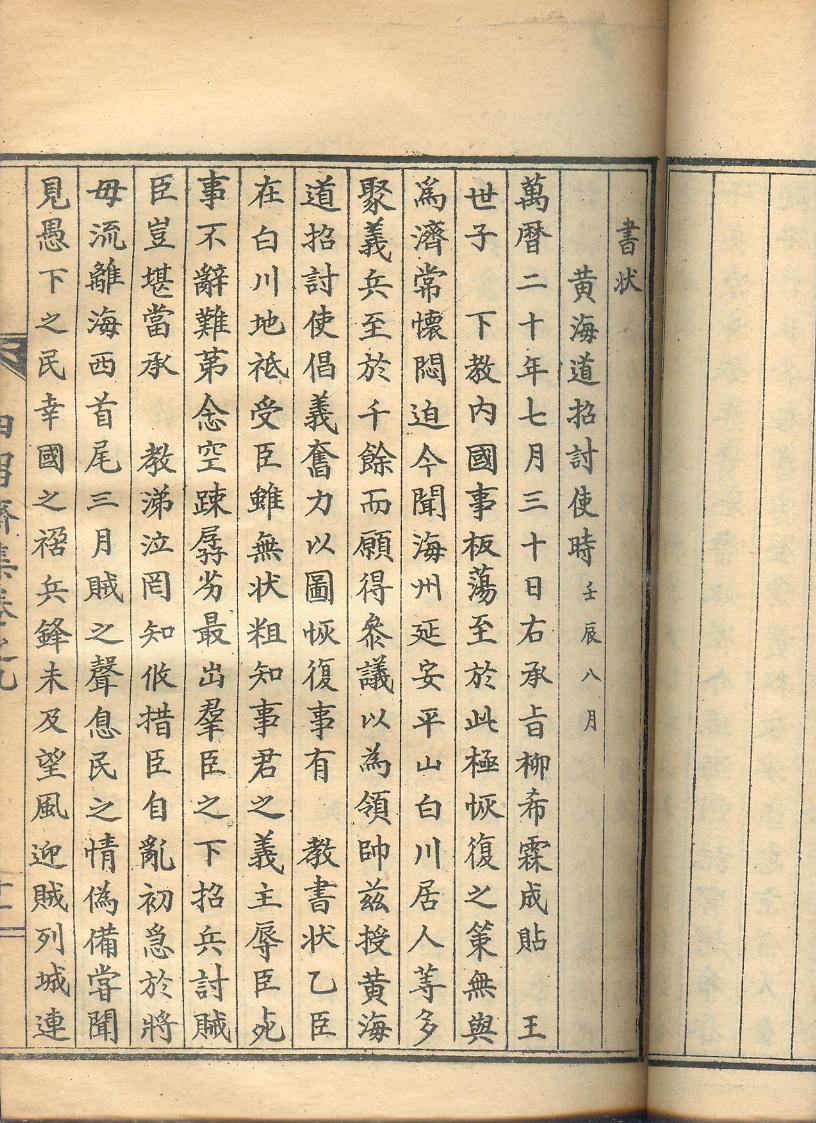 書状
黄海道招討使時 壬辰八月
萬曆二十年七月三十日右承旨柳希霖成貼 王
世子 下教內國事板蕩至於此極恢復之策無與
爲濟常懷悶迫今聞海州延安平山白川居人等多
聚義兵至於千餘而願得叅議以為領帥兹授黄海
道招討使倡義奮力以圖恢復事有 教書状乙臣
在白川地祗受臣雖無状粗知事君之義主辱臣死
事不辭難第念空踈孱劣最出羣臣之下招兵討賊
臣豈堪當承 教涕泣罔知攸措臣自亂初急於將
母流離海西首尾三月賊之聲息民之情偽備嘗聞
見愚下之民幸國之禍兵鋒未及望風迎賊列城連
四留齋集卷之九
十一